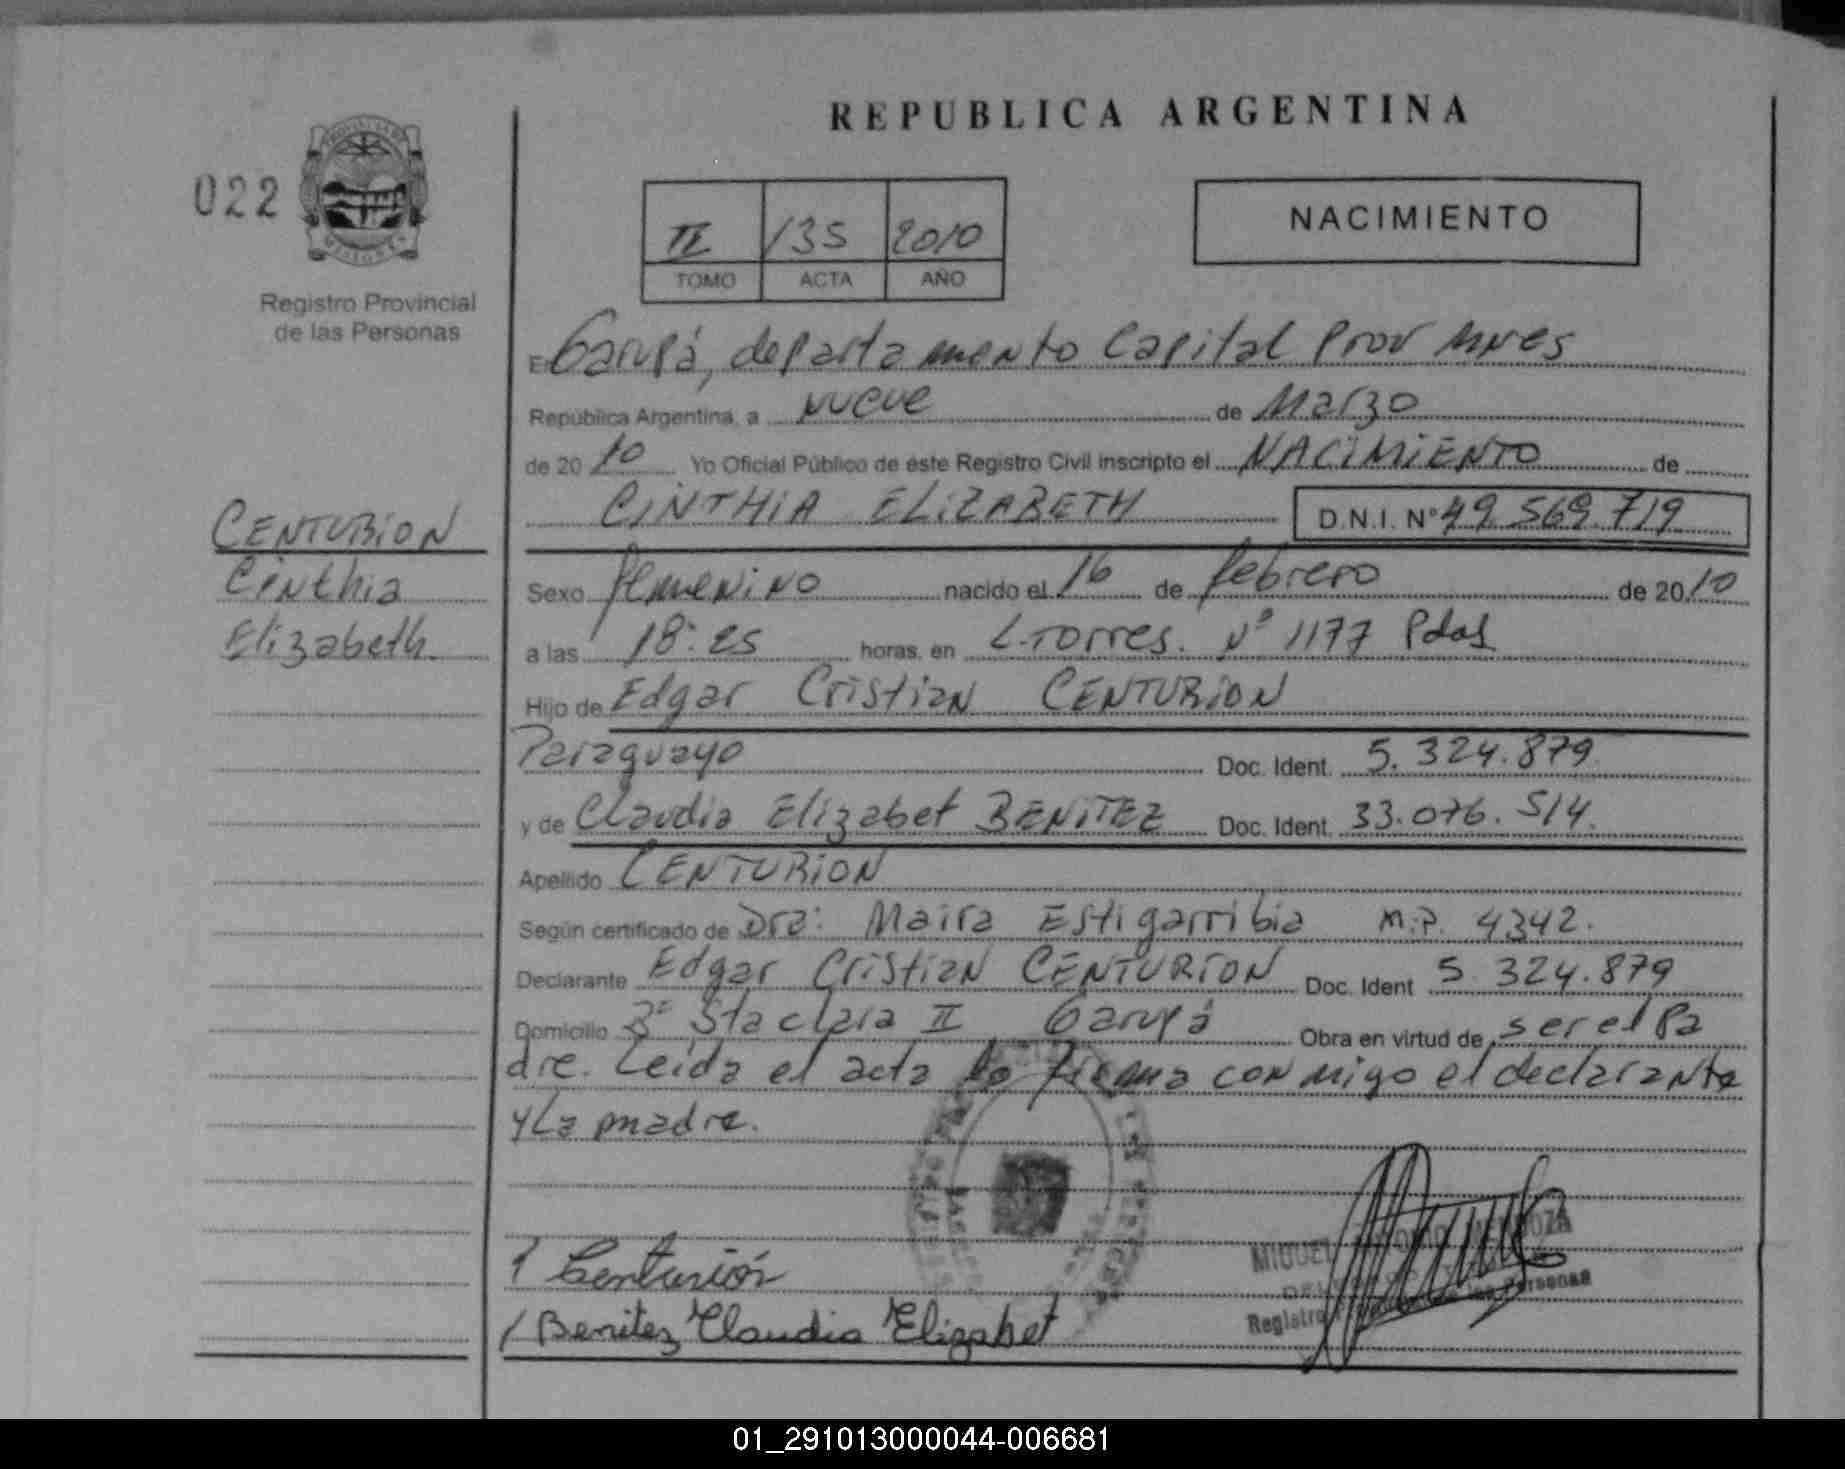 REPUBLICA ARGENTINA
022
PROVINCIA DE
MISIONES
Registro Provincial
de las Personas
II 135 2010
TOMO ACTA AÑO
NACIMIENTO
En Garupá, departamento Capital Prov Mnes
República Argentina, a nueve de Marzo
de 2010 Yo Oficial Público de éste Registro Civil inscripto el NACIMIENTO de
CINTHIA ELIZABETH D.N.I. Nº 49.569.719
CENTURION
Cinthia
Elizabeth.
Sexo femenino nacido el 16 de febrero de 2010
a las 18:25 horas, en L-Torres. Nº 1177 Pdas
Hijo de Edgar Cristian CENTURION
Paraguayo Doc. Ident. 5.324.879
y de Claudia Elizabet BENITEZ Doc. Ident. 33.076.514.
Apellido CENTURION
Según certificado de Dra: Maira Estigarribia M.P. 4342.
Declarante Edgar Cristian CENTURION Doc. Ident 5.324.879
Domicilio Bº Sta clara II Garupá Obra en virtud de ser el Pa
dre. Leida el acta la firma conmigo el declarante
y La madre.
Centurión
MIGUEL ANTONIO MENDOZA
Registro las Personas
/ Benitez Claudia Elizabet
01_291013000044-006681